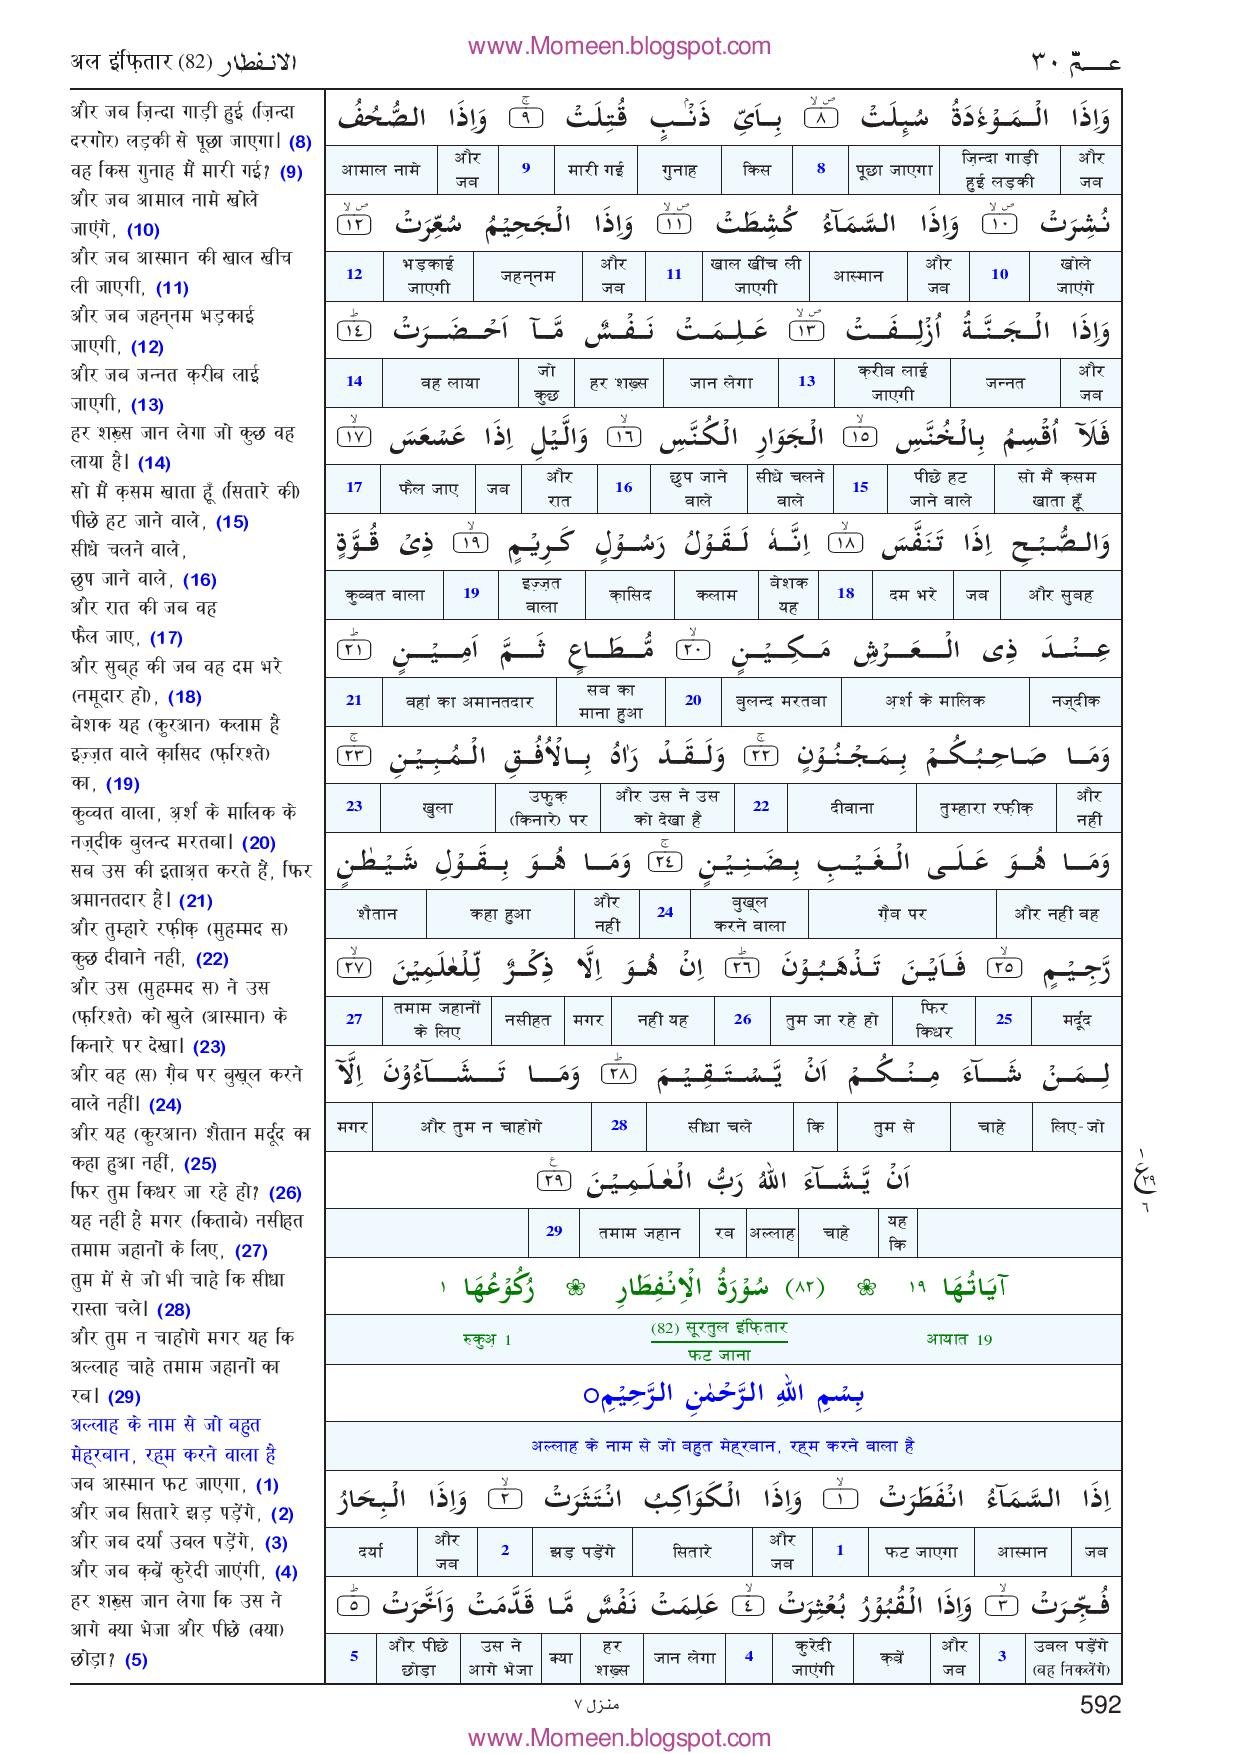 www.Momeen.blogspot.com
अल इंफ़ितार (82) الانفطار
عمّ ٣٠
और जब ज़िन्दा गाड़ी हुई (ज़िन्दा
दरगोर) लड़की से पूछा जाएगा। (8)
वह किस गुनाह मैं मारी गई? (9)
और जब आमाल नामे खोले
जाएंगे, (10)
और जब आस्मान की खाल खींच
ली जाएगी, (11)
और जब जहन्नम भड़काई
जाएगी, (12)
और जब जन्नत क़रीब लाई
जाएगी, (13)
हर शख़्स जान लेगा जो कुछ वह
लाया है। (14)
सो मैं क़सम खाता हूँ (सितारे की)
पीछे हट जाने वाले, (15)
सीधे चलने वाले,
छुप जाने वाले, (16)
और रात की जब वह
फैल जाए, (17)
और सुबह की जब वह दम भरे
(नमूदार हो), (18)
बेशक यह (कुरआन) कलाम है
इज़्ज़त वाले क़ासिद (फ़रिश्ते)
का, (19)
कुव्वत वाला, अ़र्श के मालिक के
नज़्दीक बुलन्द मरतबा। (20)
सब उस की इताअ़त करते हैं, फिर
अमानतदार है। (21)
और तुम्हारे रफ़ीक़ (मुहम्मद स)
कुछ दीवाने नहीं, (22)
और उस (मुहम्मद स) ने उस
(फ़रिश्ते) को खुले (आस्मान) के
किनारे पर देखा। (23)
और वह (स) ग़ैब पर बुख़्ल करने
वाले नहीं। (24)
और यह (कुरआन) शैतान मर्दूद का
कहा हुआ नहीं, (25)
फिर तुम किधर जा रहे हो? (26)
यह नहीं है मगर (किताबे) नसीहत
तमाम जहानों के लिए, (27)
तुम में से जो भी चाहे कि सीधा
रास्ता चले। (28)
और तुम न चाहोगे मगर यह कि
अल्लाह चाहे तमाम जहानों का
रब। (29)
अल्लाह के नाम से जो बहुत
मेह्‌रबान, रहम करने वाला है
जब आस्मान फट जाएगा, (1)
और जब सितारे झड़ पड़ेंगे, (2)
और जब दर्या उबल पड़ेंगे, (3)
और जब क़ब्रें कुरेदी जाएंगी, (4)
हर शख़्स जान लेगा कि उस ने
आगे क्या भेजा और पीछे (क्या)
छोड़ा? (5)
وَاِذَا الْمَوْءٗدَةُ سُىِٕلَتْ ۪ۙ ﴿٨﴾ بِاَىِّ ذَنْۢبٍ قُتِلَتْ ۚ ﴿٩﴾ وَاِذَا الصُّحُفُ
और जब | ज़िन्दा गाड़ी हुई लड़की | पूछा जाएगा | 8 | किस | गुनाह | मारी गई | 9 | और जब | आमाल नामे
نُشِرَتْ ۪ۙ ﴿١٠﴾ وَاِذَا السَّمَآءُ كُشِطَتْ ۪ۙ ﴿١١﴾ وَاِذَا الْجَحِيْمُ سُعِّرَتْ ۪ۙ ﴿١٢﴾
खोले जाएंगे | 10 | और जब | आस्मान | खाल खींच ली जाएगी | 11 | और जब | जहन्नम | भड़काई जाएगी | 12
وَاِذَا الْجَنَّةُ اُزْلِفَتْ ۪ۙ ﴿١٣﴾ عَلِمَتْ نَفْسٌ مَّآ اَحْضَرَتْ ؕ ﴿١٤﴾
और जब | जन्नत | क़रीब लाई जाएगी | 13 | जान लेगा | हर शख़्स | जो कुछ | वह लाया | 14
فَلَآ اُقْسِمُ بِالْخُنَّسِ ۙ ﴿١٥﴾ الْجَوَارِ الْكُنَّسِ ۙ ﴿١٦﴾ وَالَّيْلِ اِذَا عَسْعَسَ ۙ ﴿١٧﴾
सो मैं क़सम खाता हूँ | पीछे हट जाने वाले | 15 | सीधे चलने वाले | छुप जाने वाले | 16 | और रात | जब | फैल जाए | 17
وَالصُّبْحِ اِذَا تَنَفَّسَ ۙ ﴿١٨﴾ اِنَّهٗ لَقَوْلُ رَسُوْلٍ كَرِيْمٍ ۙ ﴿١٩﴾ ذِىْ قُوَّةٍ
और सुबह | जब | दम भरे | 18 | बेशक यह | कलाम | क़ासिद | इज़्ज़त वाला | 19 | कुव्वत वाला
عِنْدَ ذِى الْعَرْشِ مَكِيْنٍ ۙ ﴿٢٠﴾ مُّطَاعٍ ثَمَّ اَمِيْنٍ ؕ ﴿٢١﴾
नज़्दीक | अ़र्श के मालिक | बुलन्द मरतबा | 20 | सब का माना हुआ | वहां का अमानतदार | 21
وَمَا صَاحِبُكُمْ بِمَجْنُوْنٍ ۚ ﴿٢٢﴾ وَلَقَدْ رَاٰهُ بِالْاُفُقِ الْمُبِيْنِ ۚ ﴿٢٣﴾
और नहीं | तुम्हारा रफ़ीक़ | दीवाना | 22 | और उस ने उस को देखा है | उफुक़ (किनारे) पर | खुला | 23
وَمَا هُوَ عَلَى الْغَيْبِ بِضَنِيْنٍ ۚ ﴿٢٤﴾ وَمَا هُوَ بِقَوْلِ شَيْطٰنٍ
और नहीं वह | ग़ैब पर | बुख़्ल करने वाला | 24 | और नहीं | कहा हुआ | शैतान
رَّجِيْمٍ ۙ ﴿٢٥﴾ فَاَيْنَ تَذْهَبُوْنَ ؕ ﴿٢٦﴾ اِنْ هُوَ اِلَّا ذِكْرٌ لِّلْعٰلَمِيْنَ ۙ ﴿٢٧﴾
मर्दूद | 25 | फिर किधर | तुम जा रहे हो | 26 | नहीं यह | मगर | नसीहत | तमाम जहानों के लिए | 27
لِمَنْ شَآءَ مِنْكُمْ اَنْ يَّسْتَقِيْمَ ؕ ﴿٢٨﴾ وَمَا تَشَآءُوْنَ اِلَّآ
लिए-जो | चाहे | तुम से | कि | सीधा चले | 28 | और तुम न चाहोगे | मगर
اَنْ يَّشَآءَ اللّٰهُ رَبُّ الْعٰلَمِيْنَ ﴿٢٩﴾ ع
١ ع ٢٩ ٦
यह कि | चाहे | अल्लाह | रब | तमाम जहान | 29
آيَاتُهَا ١٩ ❀ (٨٢) سُوْرَةُ الْاِنْفِطَارِ ❀ رُكُوْعُهَا ١
रुकुअ़ 1 (82) सूरतुल इंफ़ितार आयात 19
फट जाना
بِسْمِ اللهِ الرَّحْمٰنِ الرَّحِيْمِ○
अल्लाह के नाम से जो बहुत मेह्‌रबान, रहम करने वाला है
اِذَا السَّمَآءُ انْفَطَرَتْ ۙ ﴿١﴾ وَاِذَا الْكَوَاكِبُ انْتَثَرَتْ ۙ ﴿٢﴾ وَاِذَا الْبِحَارُ
जब | आस्मान | फट जाएगा | 1 | और जब | सितारे | झड़ पड़ेंगे | 2 | और जब | दर्या
فُجِّرَتْ ۙ ﴿٣﴾ وَاِذَا الْقُبُوْرُ بُعْثِرَتْ ۙ ﴿٤﴾ عَلِمَتْ نَفْسٌ مَّا قَدَّمَتْ وَاَخَّرَتْ ؕ ﴿٥﴾
उबल पड़ेंगे (बह निकलेंगे) | 3 | और जब | क़ब्रें | कुरेदी जाएंगी | 4 | जान लेगा | हर शख़्स | क्या | उस ने आगे भेजा | और पीछे छोड़ा | 5
منزل ٧
592
www.Momeen.blogspot.com